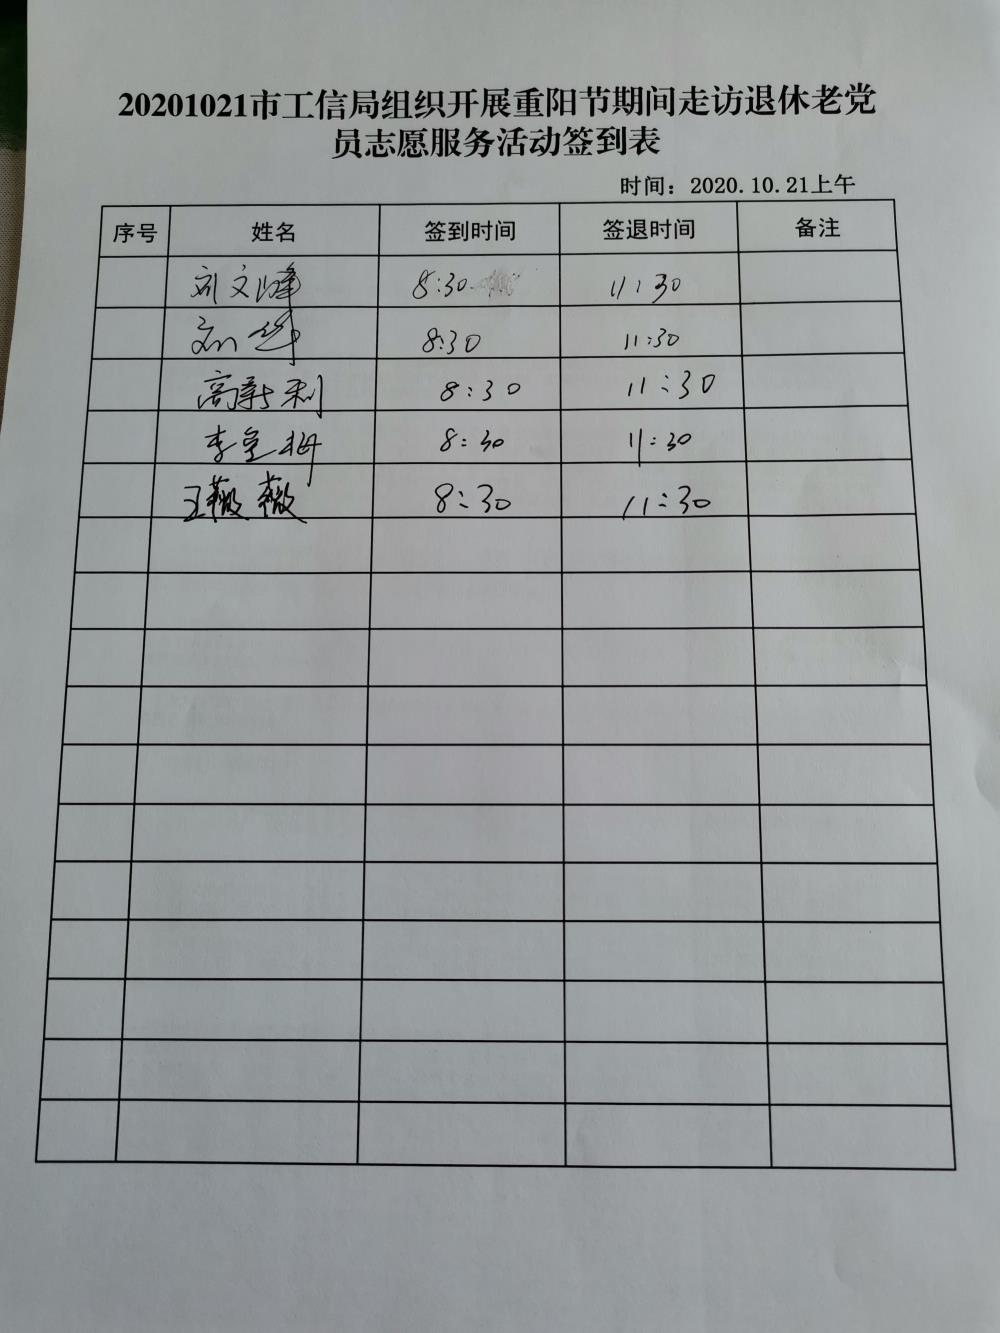 20201021市工信局组织开展重阳节期间走访退休老党
员志愿服务活动签到表
时间：2020.10.21上午
序号 姓名 签到时间 签退时间 备注
刘文峰 8:30 11:30
刘华 8:30 11:30
高新利 8:30 11:30
李 梅 8:30 11:30
王薇薇 8:30 11:30